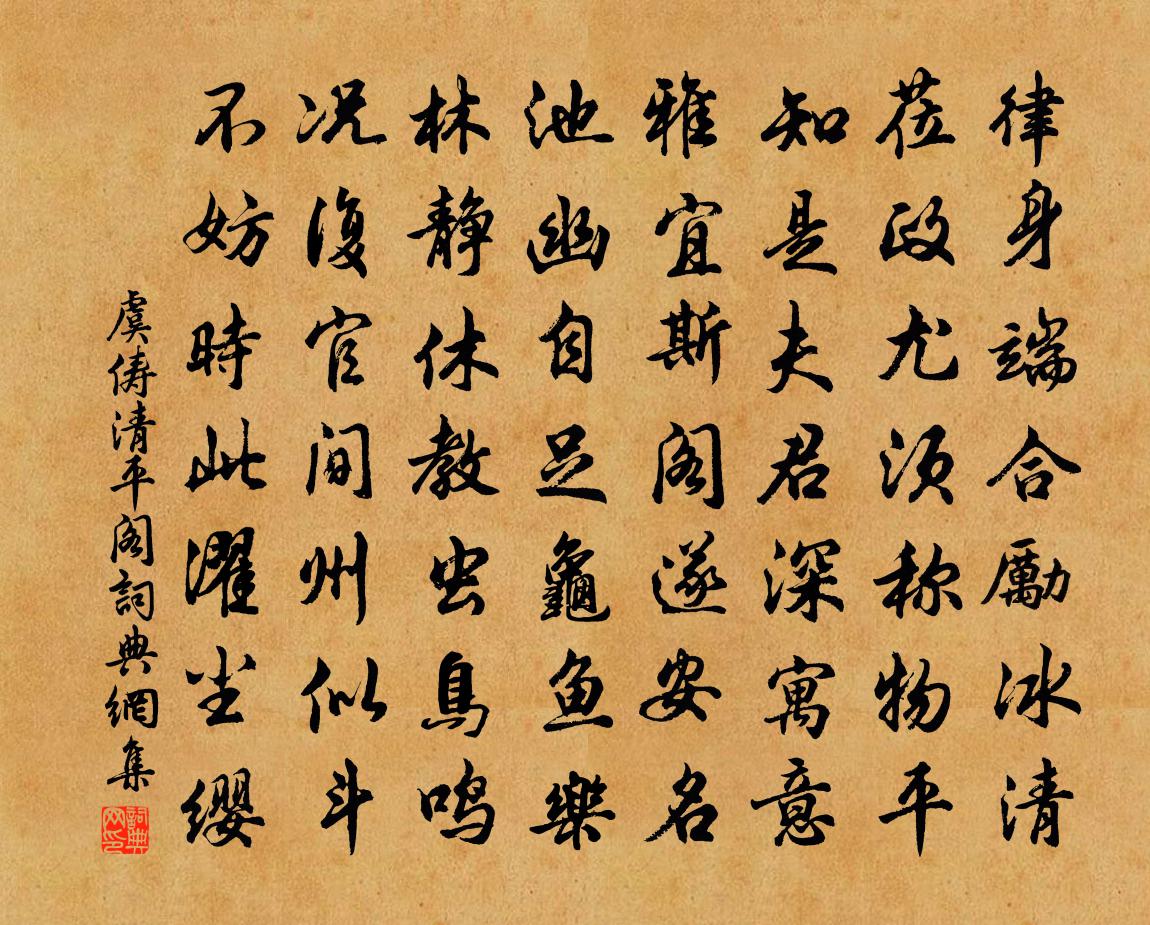 律身端合勵冰清
莅政尤须称物平
知是夫君深寓意
雅宜斯阁遂安名
池幽自足龜鱼樂
林静休教虫鳥鸣
况復官间州似斗
不妨時此濯尘缨
虞俦清平阁詞典網集
詞典网印